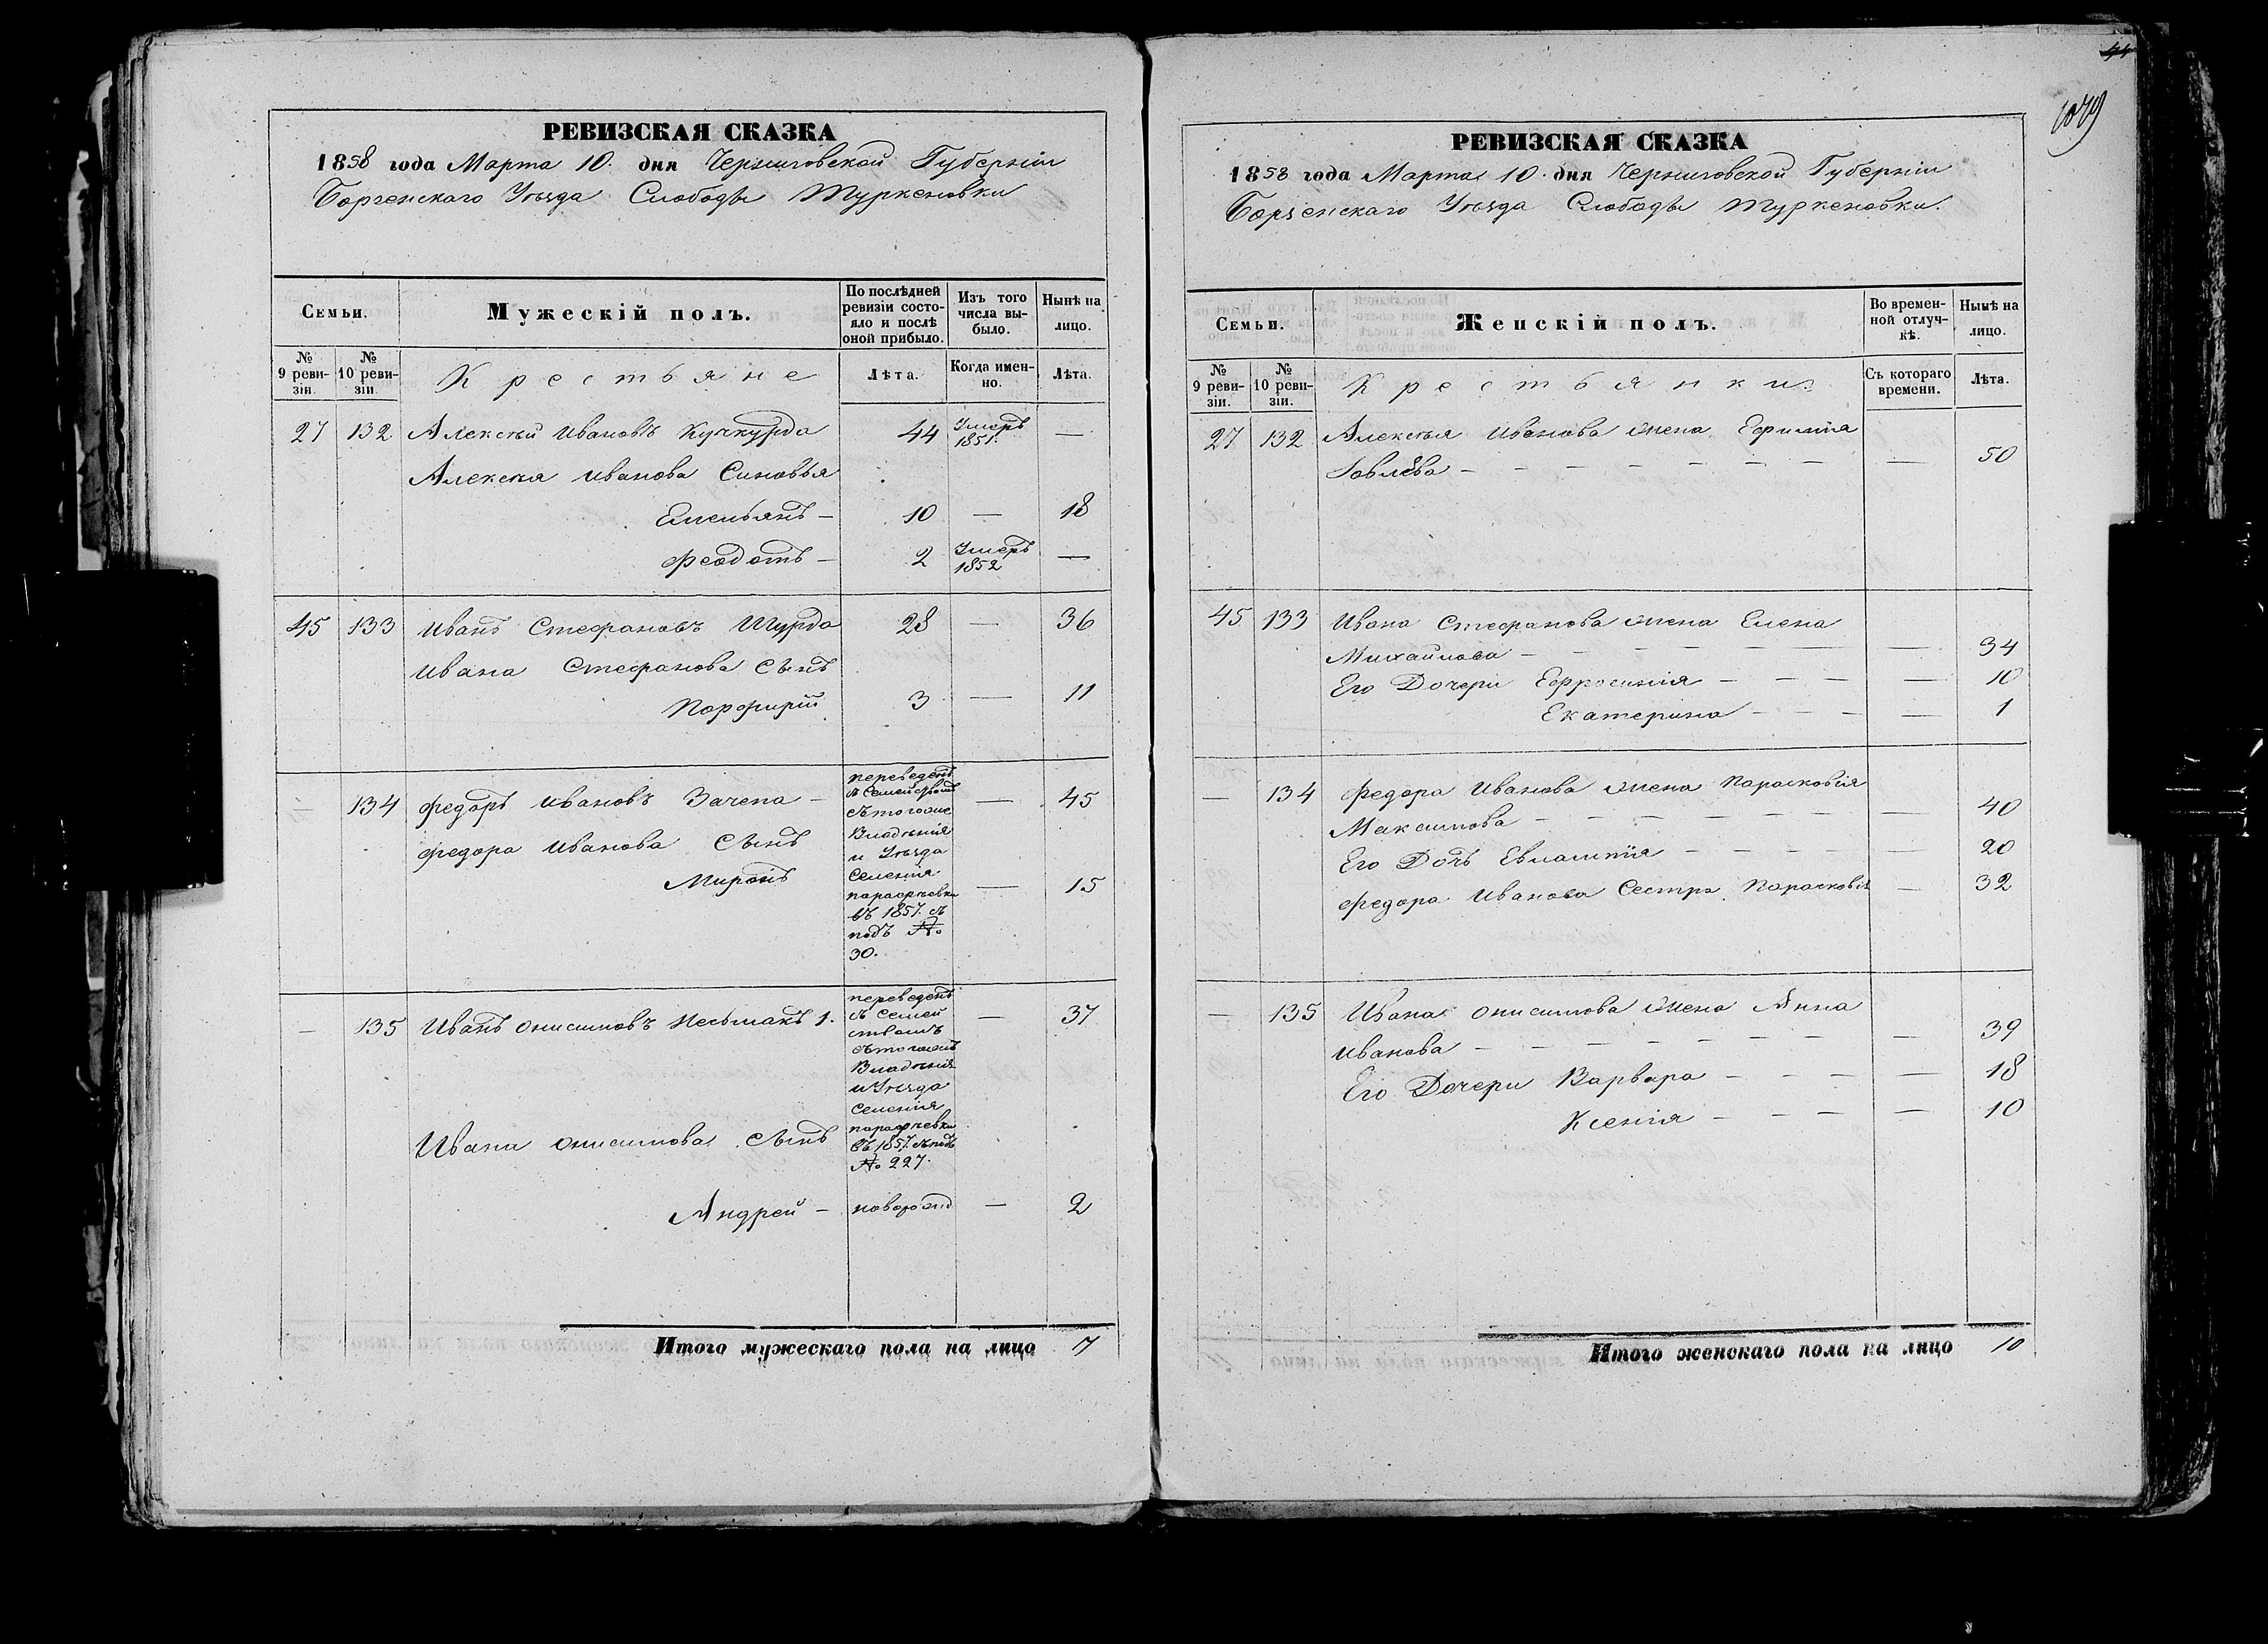 РЕВИЗСКАЯ СКАЗКА
1858 года Марта 10. дня Черниговской Губерніи
Борзенскаго Уѣзда Слободы Туркеновки
Семьи.
Мужескій полъ.
По послѣдней ревизіи состояло и послѣ оной прибыло.
Изъ того числа выбыло.
Нынѣ на лицо.
№ 9 ревизіи.
№ 10 ревизіи.
Крестьяне
Лѣта.
Когда именно.
Лѣта.
27 132 Алексѣй Ивановъ Кучкурда 44 Умеръ 1851. —
Алексея Иванова Сыновья
Емельянъ — 10 — 18
Феодотъ — 2 Умеръ 1852 —
45 133 Иванъ Стефановъ Шурда 28 — 36
Ивана Стефанова Сынъ
Порфирій 3 — 11
— 134 Федоръ Ивановъ Зачепа — 45
Федора Иванова Сынъ
Миронъ — 15
переведенъ
съ Семействомъ
съ того же
Владѣнія
и Уѣзда
Селенія
Парафѣевки
въ 1857. съ
подъ №
30.
— 135 Иванъ Онисимовъ Несьмакъ 1. — 37
переведенъ
съ Семей
ствомъ
съ того же
Владѣнія
и Уѣзда
Селенія
парафѣевки
въ 1857. съ подъ
№ 227.
Ивана Онисимова Сынъ
Андрей — новорожд — 2
Итого мужескаго пола на лицо 7
44
1079
РЕВИЗСКАЯ СКАЗКА
1858 года Марта 10. дня Черниговской Губерніи
Борзенскаго Уѣзда Слободы Туркеновки.
Семьи.
Женскій полъ.
Во временной отлучкѣ.
Нынѣ на лицо.
№ 9 ревизіи.
№ 10 ревизіи.
Крестьянки.
Съ котораго времени.
Лѣта.
27 132 Алексѣя Иванова жена Ефимія
— — — — — — — — 50
45 133 Ивана Стефанова жена Елена
Михайлова — — — — — — — 34
Его Дочери Ефросинія — — — — — 10
Екатерина — — — — 1
— 134 Федора Иванова жена Парасковія
Максимова — — — — — — — 40
Его Дочь Евлампія — — — — — 20
Федора Иванова Сестра Парасковія — 32
— 135 Ивана Онисимова жена Анна
Иванова — — — — — — — — 39
Его Дочери Варвара — — — — — 18
Ксенія — — — — — 10
Итого женскаго пола на лицо 10